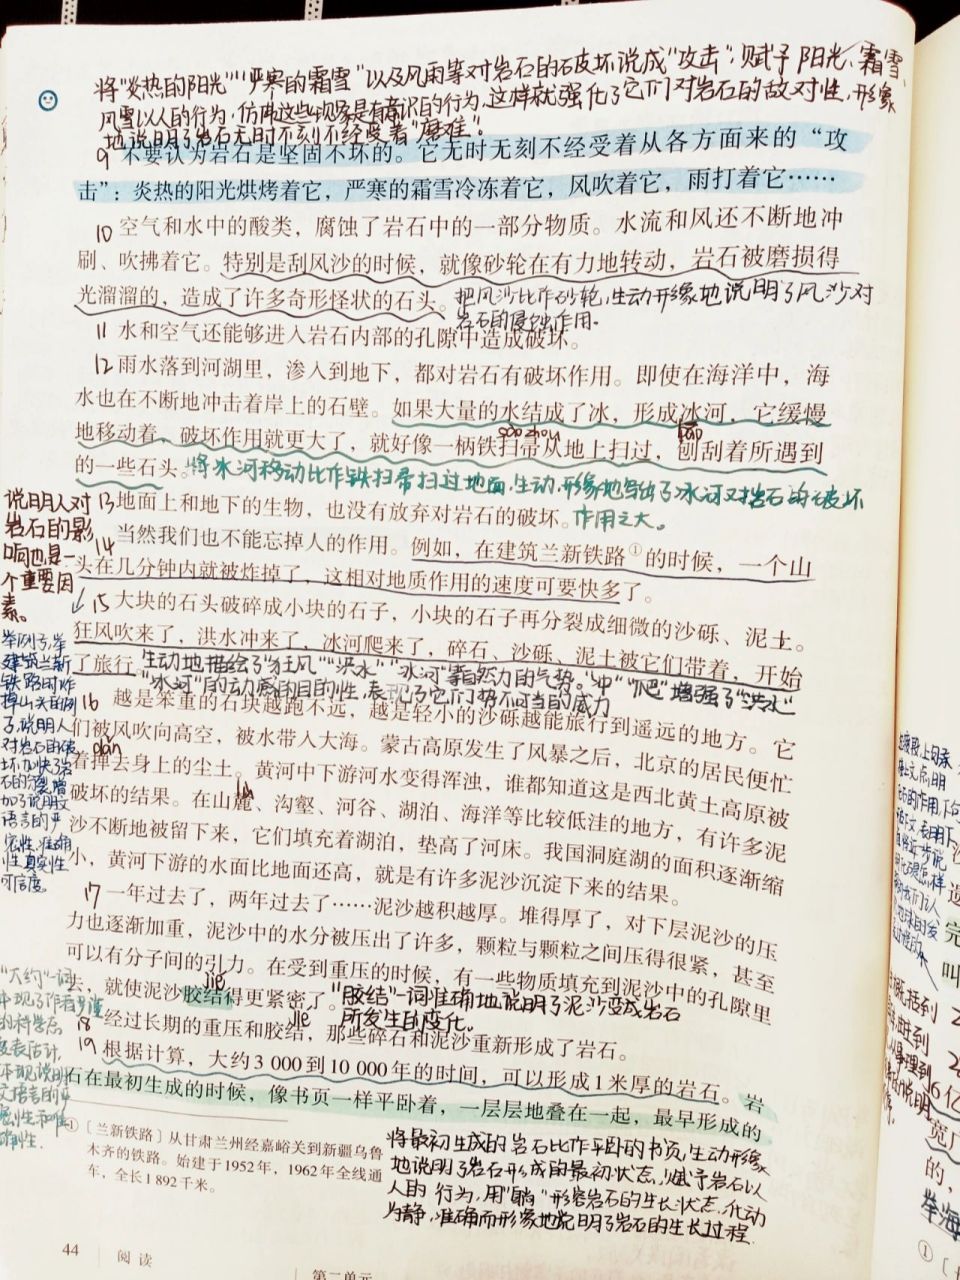 将“炎热的阳光”“严寒的霜雪”以及风雨等对岩石的破坏说成“攻击”,赋予阳光、霜雪、
风雪以人的行为,仿佛这些现象是有意识的行为,这样就强化了它们对岩石的敌对性,形象
地说明了岩石无时不刻不经受着“磨难”。
9 不要认为岩石是坚固不坏的。它无时无刻不经受着从各方面来的“攻
击”:炎热的阳光烘烤着它,严寒的霜雪冷冻着它,风吹着它,雨打着它……
10 空气和水中的酸类,腐蚀了岩石中的一部分物质。水流和风还不断地冲
刷、吹拂着它。特别是刮风沙的时候,就像砂轮在有力地转动,岩石被磨损得
光溜溜的,造成了许多奇形怪状的石头。
把风沙比作砂轮,生动形象地说明了风沙对
岩石的侵蚀作用。
11 水和空气还能够进入岩石内部的孔隙中造成破坏。
12 雨水落到河湖里,渗入到地下,都对岩石有破坏作用。即使在海洋中,海
水也在不断地冲击着岸上的石壁。如果大量的水结成了冰,形成冰河,它缓慢
sào zhou
páo
地移动着,破坏作用就更大了,就好像一柄铁扫帚从地上扫过,刨刮着所遇到
的一些石头。
将冰河移动比作铁扫帚扫过地面,生动形象地写出了冰河对岩石的破坏
作用之大。
13 地面上和地下的生物,也没有放弃对岩石的破坏。
14 当然我们也不能忘掉人的作用。例如,在建筑兰新铁路①的时候,一个山
头在几分钟内就被炸掉了,这相对地质作用的速度可要快多了。
说明人对
岩石的影
响也是一
个重要因
素。
15 大块的石头破碎成小块的石子,小块的石子再分裂成细微的沙砾、泥土。
狂风吹来了,洪水冲来了,冰河爬来了,碎石、沙砾、泥土被它们带着,开始
了旅行。
生动地描绘了“狂风”“洪水”“冰河”等自然力的气势。“冲”“爬”增强了“洪水”
“冰河”的动感的目的性,表现了它们势不可当的威力
举例子,举
建筑兰新
铁路时炸
掉山头的例
子,说明人
对岩石的破
坏,加快了岩
加了说明文
语言的严
密性,准确
性,真实性
可信度。
16 越是笨重的石块越跑不远,越是轻小的沙砾越能旅行到遥远的地方。它
们被风吹向高空,被水带入大海。蒙古高原发生了风暴之后,北京的居民便忙
dǎn
着掸去身上的尘土。黄河中下游河水变得浑浊,谁都知道这是西北黄土高原被
lù
破坏的结果。在山麓、沟壑、河谷、湖泊、海洋等比较低洼的地方,有许多泥
沙不断地被留下来,它们填充着湖泊,垫高了河床。我国洞庭湖的面积逐渐缩
小,黄河下游的水面比地面还高,就是有许多泥沙沉淀下来的结果。
17 一年过去了,两年过去了……泥沙越积越厚。堆得厚了,对下层泥沙的压
力也逐渐加重,泥沙中的水分被压出了许多,颗粒与颗粒之间压得很紧,甚至
可以有分子间的引力。在受到重压的时候,有一些物质填充到泥沙中的孔隙里
jié
去,就使泥沙胶结得更紧密了。
“胶结”一词准确地说明了泥沙变成岩石
所发生的变化。
jié
18 经过长期的重压和胶结,那些碎石和泥沙重新形成了岩石。
19 根据计算,大约3 000到10 000年的时间,可以形成1米厚的岩石。岩
石在最初生成的时候,像书页一样平卧着,一层层地叠在一起,最早形成的
“大约”一词
体现了作者严谨
的科学态
度表估计,
体现说明
文语言的严
密性和准
确性.
将最初生成的岩石比作平卧的书页,生动形象
地说明了岩石形成的最初状态,赋予岩石以
人的行为,用“躺”形容岩石的生长状态,化动
为静,准确而形象地说明了岩石的生长过程.
①〔兰新铁路〕从甘肃兰州经嘉峪关到新疆乌鲁
木齐的铁路。始建于1952年,1962年全线通
车,全长1 892千米。
44 阅读
第二单元